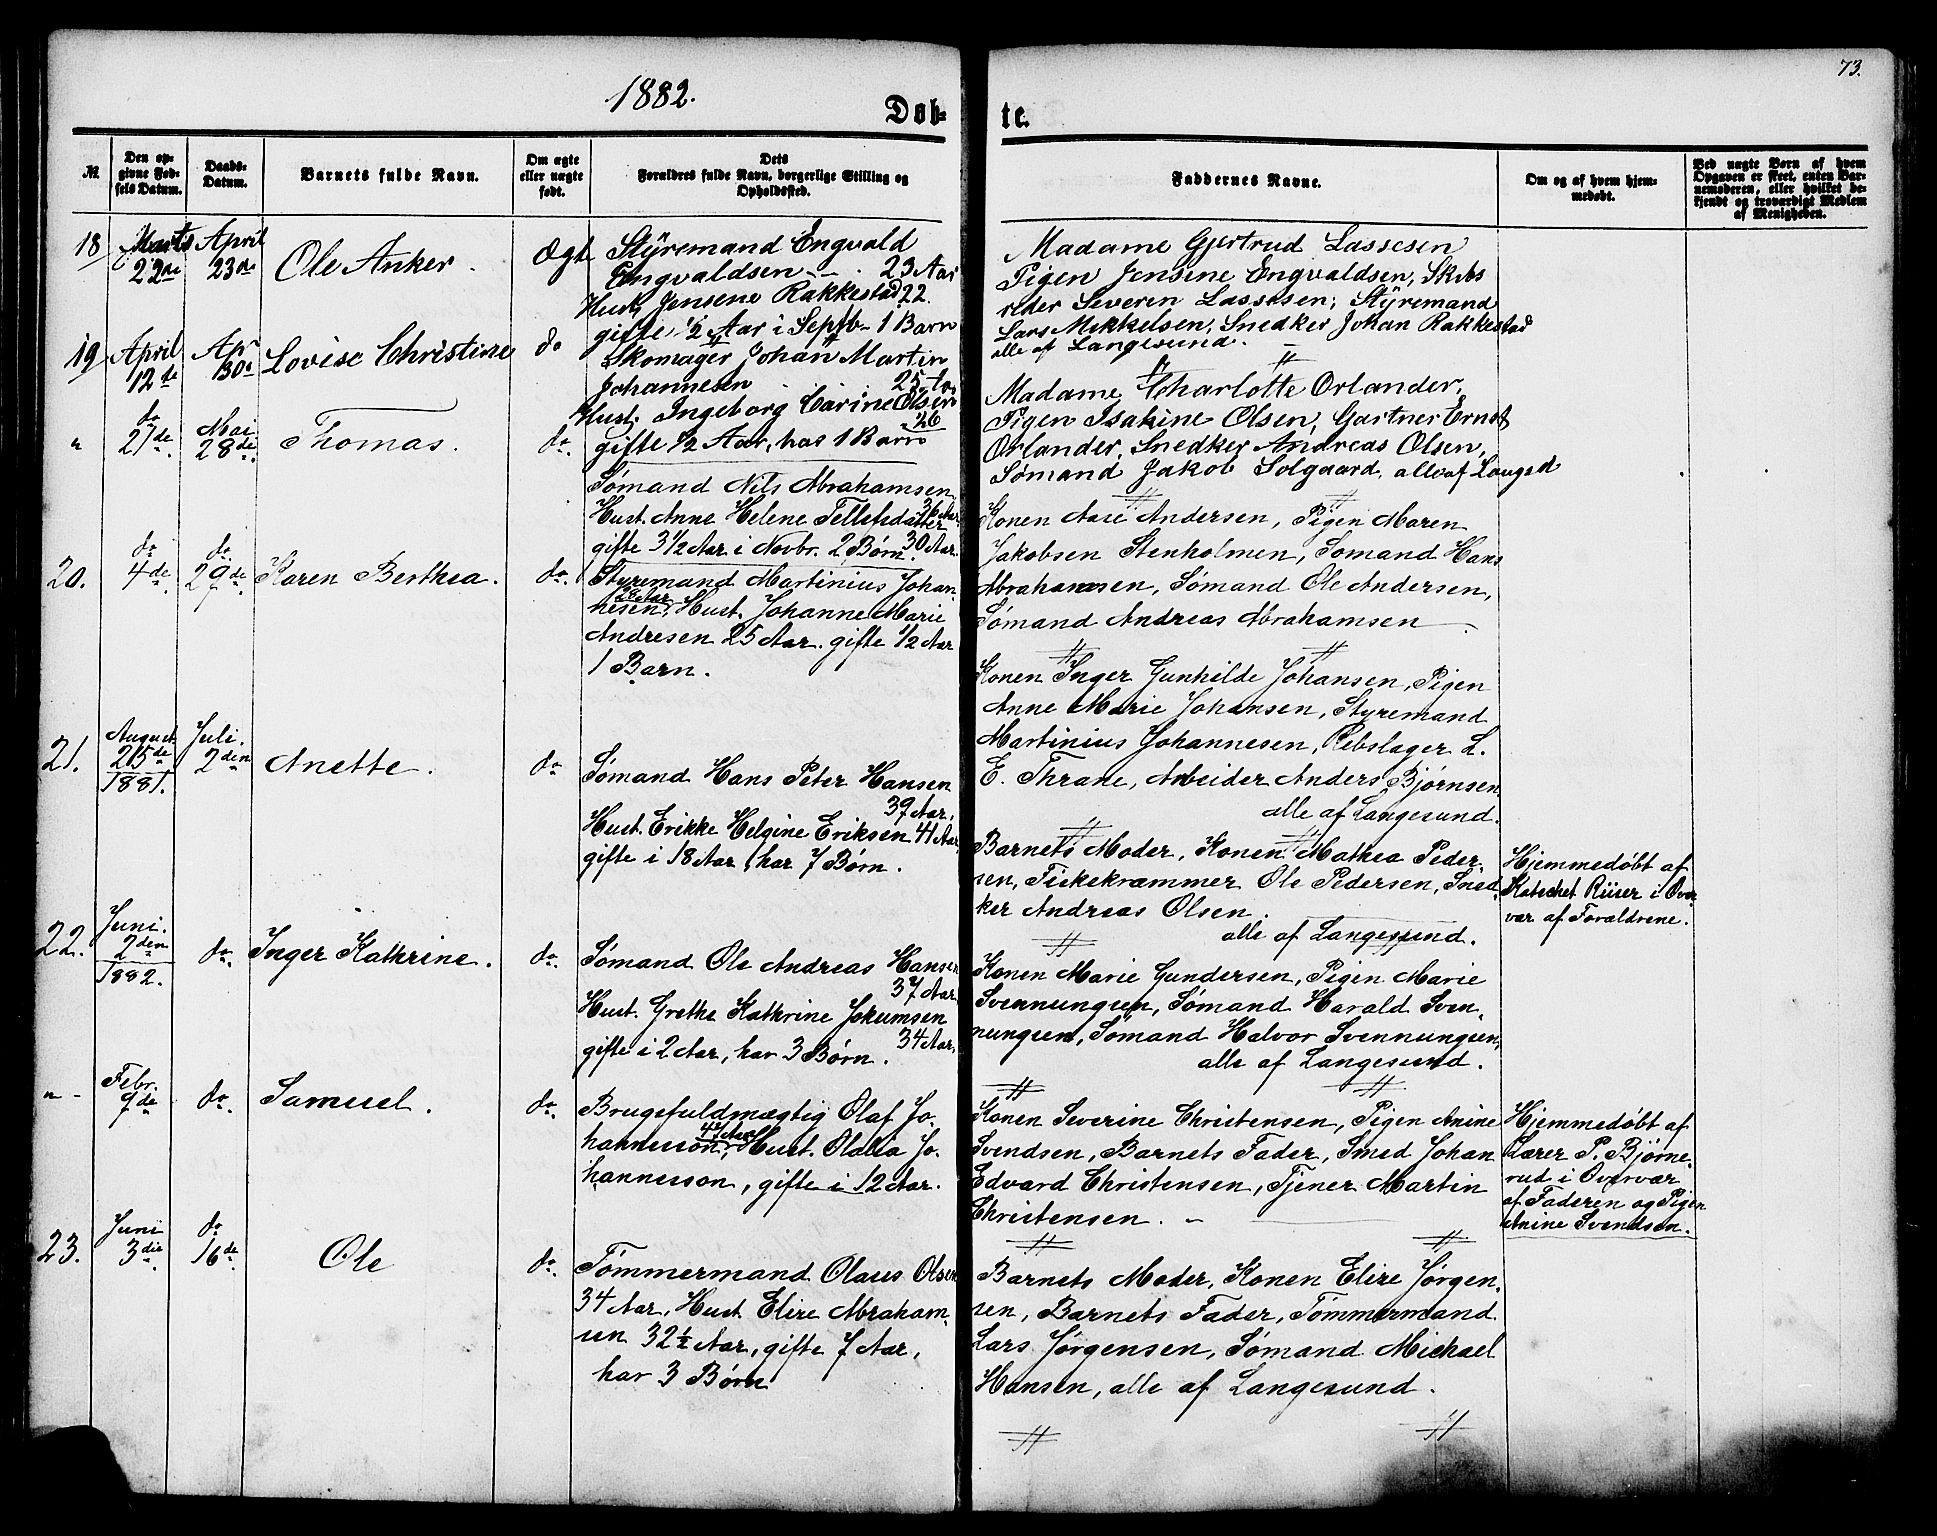 1882.
73.
Døb-
te.
№
Den op-
givne Fød-
sels Datum.
Daabs-
Datum.
Barnets fulde Navn.
Om ægte
eller uægte
født.
Dets
Forældres fulde Navn, borgerlige Stilling og
Opholdssted.
Faddernes Navne.
Om og af hvem hjem-
medøbt.
Ved uægte Børn af hvem
Opgaven er skeet, enten Bar-
nemoderen, eller hvilket be-
kjendt og troværdigt Medlem
af Menigheden.
18
Marts
22de
April
23de
Ole Anker.
Ægt
Styremand Engvald
Engvaldsen - - . 23 Aar
Hust. Jensene Rakkestad 22.
gifte 1/2 Aar i Septb - 1 Barn
Madame Gjertrud Lassesen
Pigen Jensine Engvaldsen, Skibs
reder Severen Lassesen, Styremand
Lars Mikkelsen, Snedker Johan Rakkestad
alle af Langesund.
19
April
12te
Apr
30e
Lovise Christine
do
Skomager Johan Martin
Johannesen 25 Aar
Hust. Ingeborg Carine Olsen
26
gifte 1/2 Aar, has 1 Barn
Madame Charlotte Orlander,
Pigen Isakine Olsen, Gartner Ernst
Orlander, Snedker Andreas Olsen,
Sømand Jakob Solgaard, alle af Langsd
"
do
21de.
Mai
28de.
Thomas.
do.
Sømand Nils Abrahamsen
36 Aar.
Hust. Anne Helene Tellefsdatter
30 Aar.
gifte 3 1/2 Aar i Novbr. 2 Børn.
Konen Aase Andersen, Pigen Maren
Jakobsen Stenholmen, Sømand Hans
Abrahamsen, Sømand Ole Andersen,
Sømand Andreas Abrahamsen
20.
do
4de.
do
29de.
Karen Berthea.
do.
Styremand Martinius Johan-
28 Aar
nesen, Hust. Johanne Marie
Andresen 25 Aar. gifte 1/2 Aar
1 Barn.
Konen Inger Gunhilde Johansen, Pigen
Anne Marie Johansen, Styremand
Martinius Johannesen, Rebslager L.
E. Thrane, Arbeider Anders Bjørnsen
alle af Langesund.
21.
August
25de
1881.
Juli.
2den
Anette.
do.
Sømand Hans Peter Hansen
39 Aar,
Hust. Erikke Helgine Eriksen 41 Aar,
gifte i 18 Aar, har 7 Børn.
Barnets Moder, Konen Mathea Peder-
sen, Fiskekræmmer Ole Pedersen, Sned-
ker Andreas Olsen.
alle af Langesund.
Hjemmedøbt af
Katechet Riiser i Over
vær af Forældrene.
22.
Juni.
2den
1882.
do.
Inger Kathrine.
do.
Sømand Ole Andreas Hansen
37 Aar.
Hust. Grethe Kathrine Jokumsen
34 Aar,
gifte i 2 Aar, har 3 Børn.
Konen Marie Gundersen, Pigen Marie
Svennungsen, Sømand Harald Sven-
nungsen, Sømand Halvor Svennungsen,
alle af Langesund.
" -
Febr.
9de
do.
Samuel.
do.
Brugsfuldmægtig Olaf Jo-
47 Aar
hannesson, Hust. Olalia Jo-
hannesson, gifte i 12 Aar.
Konen Severine Christensen, Pigen Anine
Svendsen, Barnets Fader, Smed Johan
Edvard Christensen, Tjener Martin
Christensen.
Hjemmedøbt af
Lærer P. Bjørne-
rud i Overvær
af Faderen og Pigen
Anine Svendsen.
23.
Juni
3die.
do
16de.
Ole
do.
Tømmermand Olaus Olsen
34 Aar, Hust. Elise Abraham-
sen 32 1/2 Aar, gifte 7 Aar,
har 3 Børn
Barnets Moder, Konen Elise Jørgen-
sen, Barnets Fader, Tømmermand
Lars Jørgensen, Sømand Michael
Hansen, alle af Langesund.